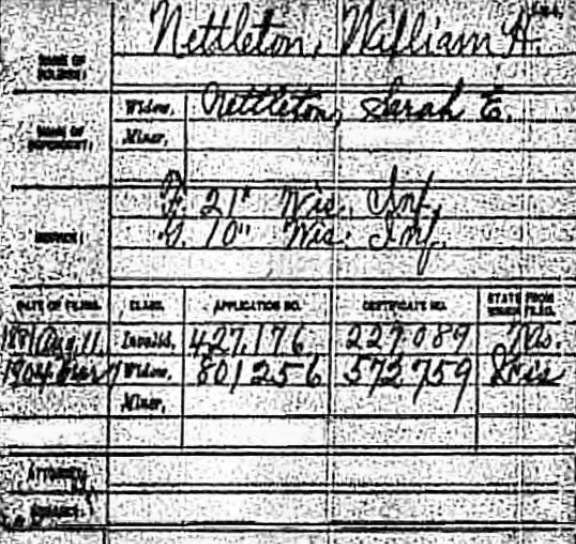 Nettleton, William H.
NAME OF SOLDIER:
NAME OF DEPENDENT:
Widow, Nettleton, Sarah E.
Minor,
SERVICE:
F. 21" Wis. Inf.
G. 10" Wis. Inf.
DATE OF FILING. CLASS. APPLICATION NO. CERTIFICATE NO. STATE FROM WHICH FILED.
1881 Aug. 11. Invalid, 427.176 227089
1904 Widow, 801256 572759 Wis
Minor,
ATTORNEY: